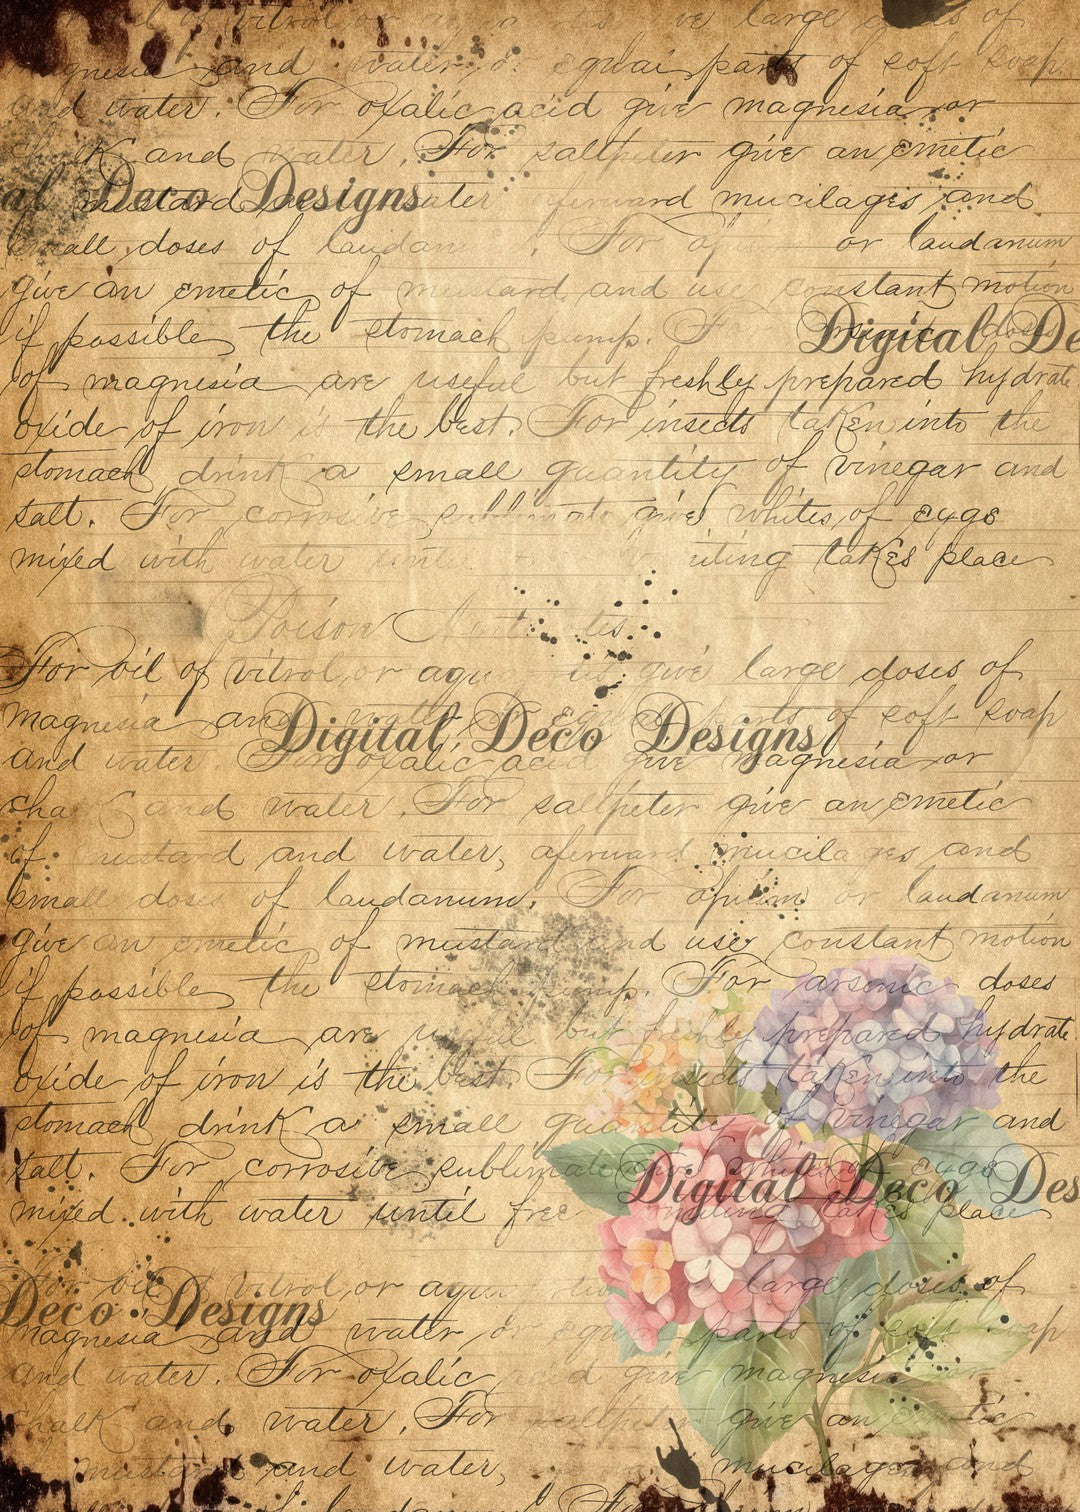 of vitrol, or large doses of
magnesia and water, or equal parts of soft soap
and water. For oxalic acid give magnesia or
chalk and water. For saltpeter give an emetic
mustard water aferward mucilages and
al Deco Designs
small doses of laudan For or laudanum
give an emetic of mustard and use constant motion
if possible the stomach pump. doses
Digital De
of magnesia are useful but freshly prepared hydrate
oxide of iron is the best. For insects taken into the
stomach drink a small quantity of vinegar and
salt. For corrosive sublimate give whites of eygs
mixed with water until takes place
Poison
For oil of vitrol, or aqua give large doses of
magnesia and water equal parts of soft soap
Digital Deco Designs
and water. For oxalic acid give magnesia or
cha and water. For saltpeter give an emetic
of mustard and water, aferward mucilages and
small doses of laudanum. For opium or laudanum
give an emetic of mustard and use constant motion
if possible the stomach pump. For arsonic doses
of magnesia are useful but freshly prepared hydrate
oxide of iron is the best. For insects taken into the
stomach drink a small quantity of vinegar and
salt. For corrosive sublimate give whites of eygs
Digital Deco Des
mixed with water until free takes place
For oil of vitrol, or aqua large doses of
Deco Designs
magnesia and water, or equal parts of soap
and water. For oxalic acid give magnesia or
chalk and water. For saltpeter give an emetic
mustard and water, mucilages and